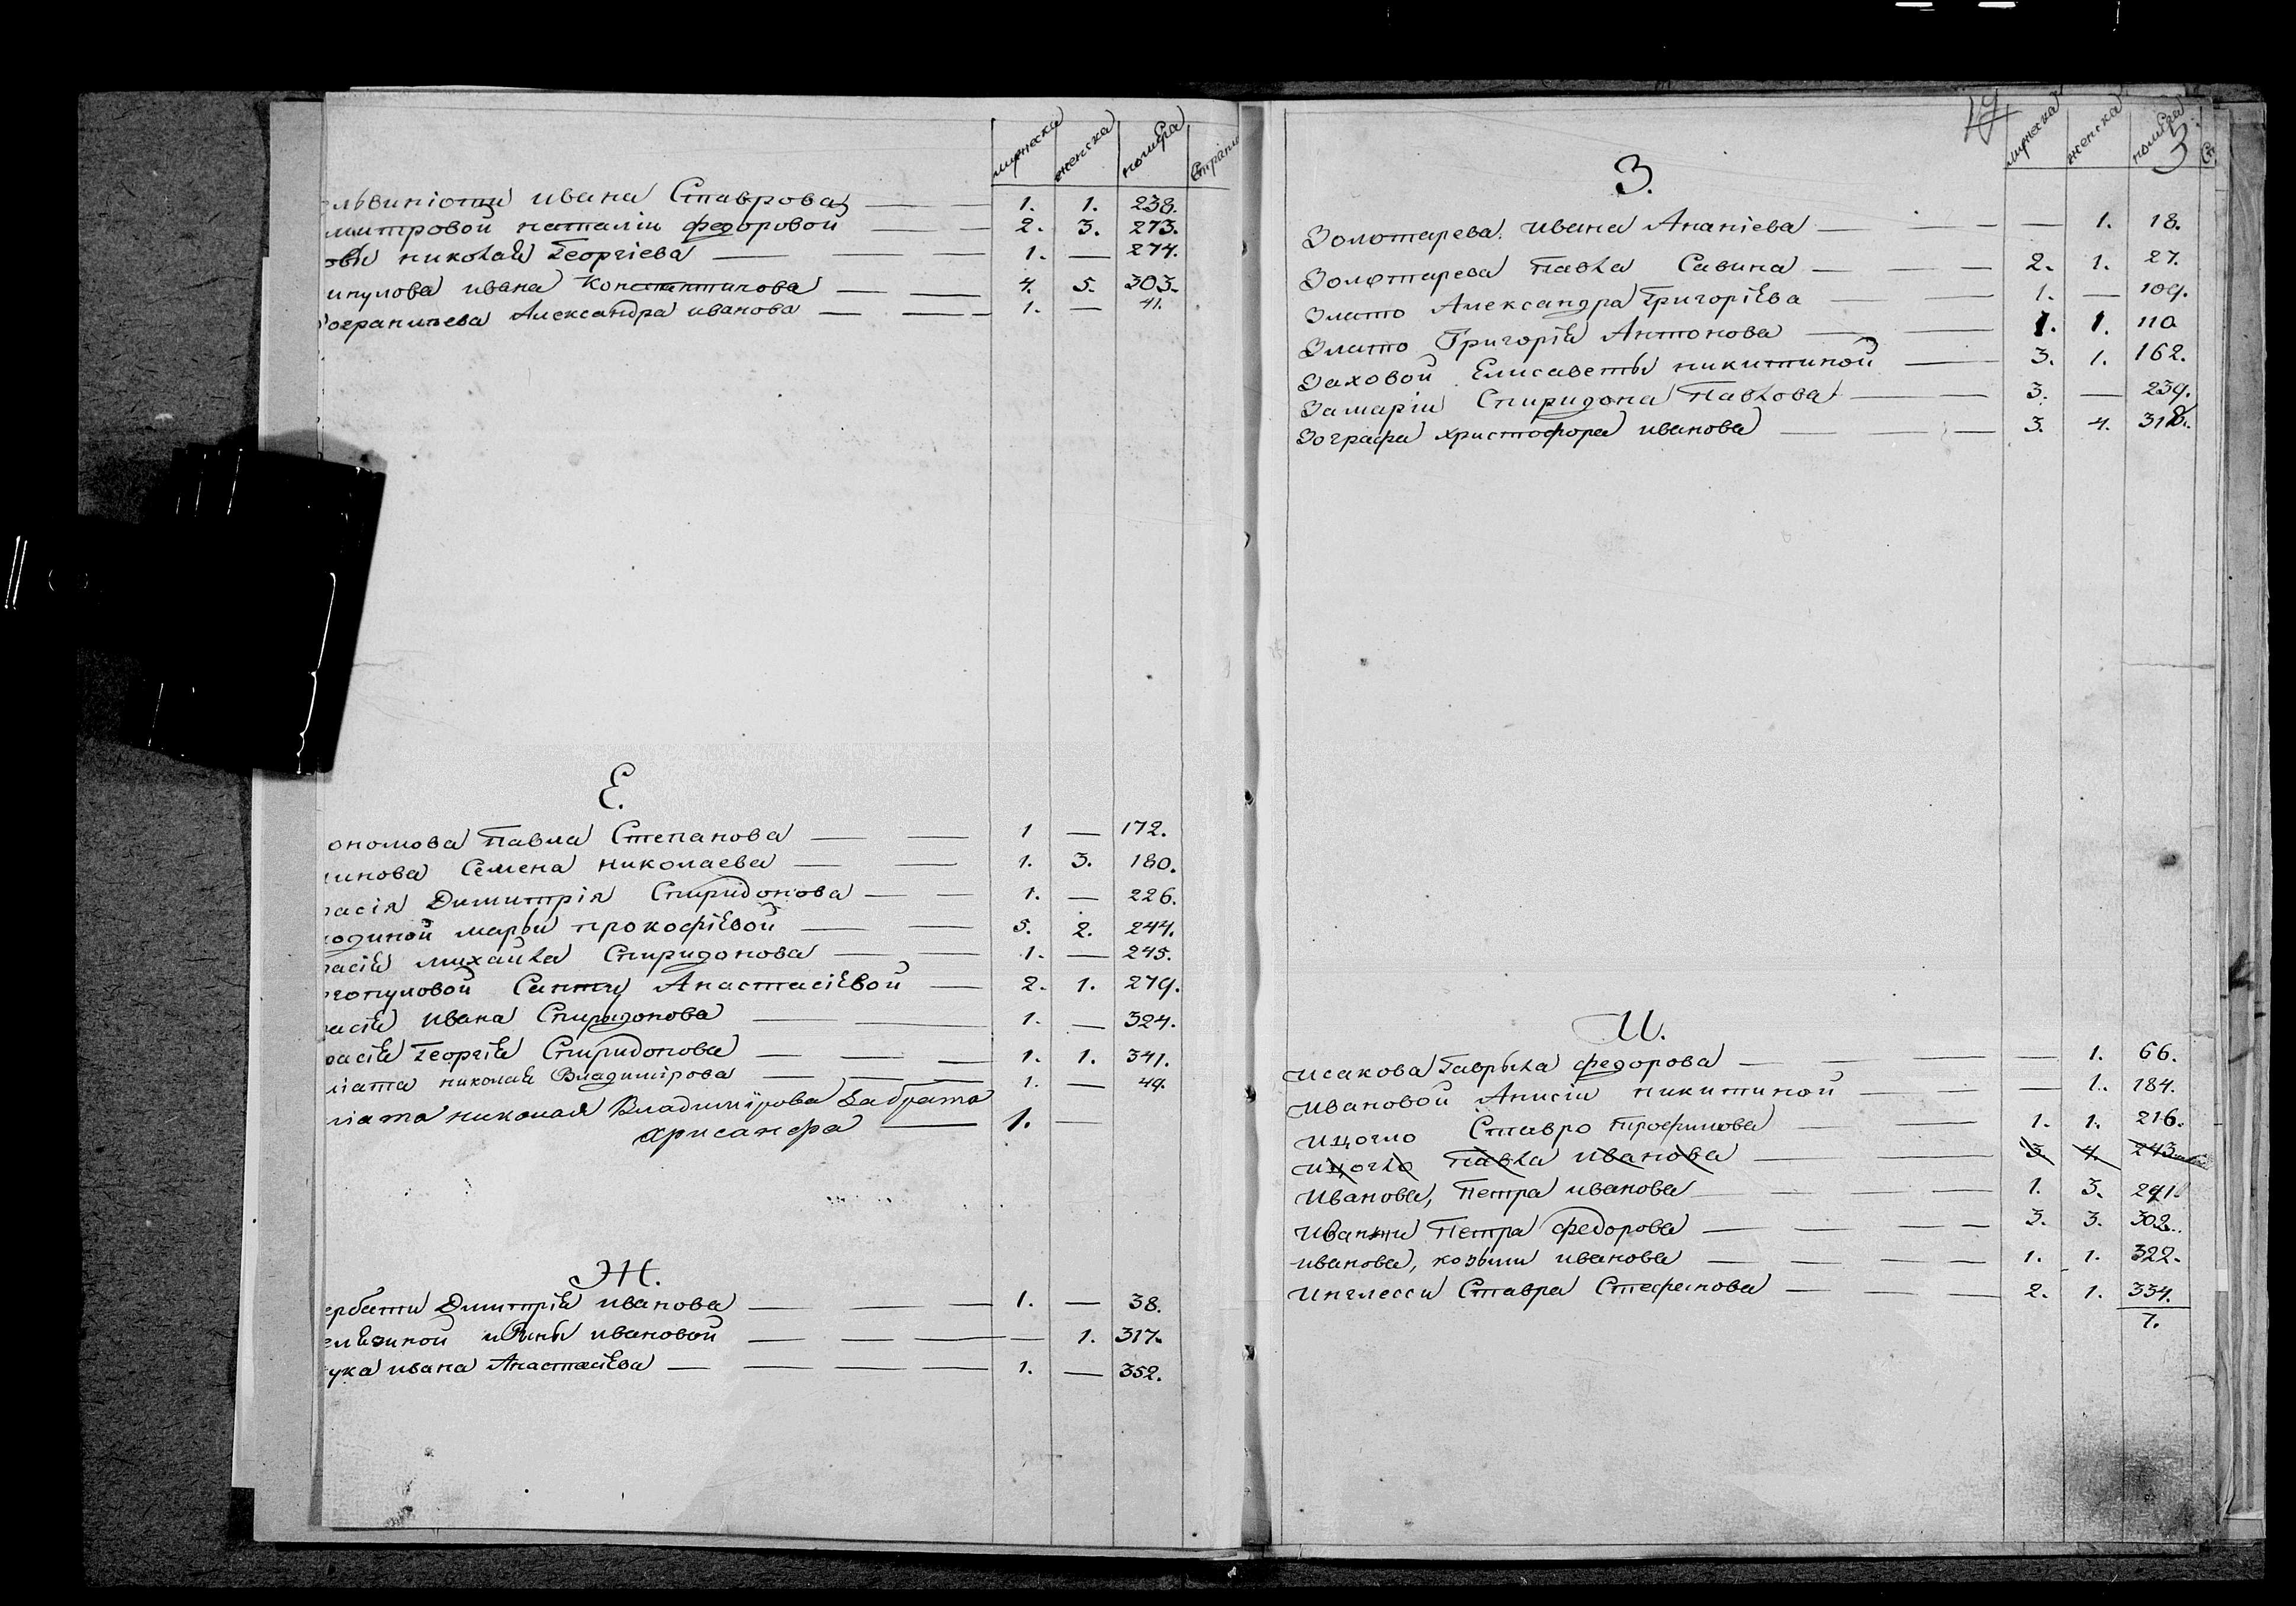 мужеска женска номера Страни
львиніоти ивана Ставрова — — 1. 1. 238.
митровой наталіи федоровой — — 2. 3. 273.
николая Георгіева — — — 1. — 274.
ипулова ивана Константинова — — 4. 5. 303.
ограничева Александра иванова — — — 1. — 41.
Е.
ономова Павла Степанова — — 1 — 172.
инова Семена николаева — — 1. 3. 180.
расія Димитрія Спиридонова — — 1. — 226.
одиной марьи прокофіевой — — 5. 2. 244.
расія михайла Спиридонова — — 1. — 245.
гопуловой Санты Анастасіевой — 2. 1. 279.
расія ивана Спиридонова — — 1. — 324.
расія Георгія Спиридонова — — — 1. 1. 341.
ліата николая Владимірова — — — 1. — 49.
ліата николая Владимірова
Хрисанфа — 1. —
Ж.
ербати Димитрія иванова — — — 1. — 38.
елезиной ирины ивановой — — — — 1. 317.
ука ивана Анастасіева — — — — 1. — 352.
мужеска женска номера Ст
3
З.
Золотарева ивана Ананіева — — — — 1. 18.
Золотарева Павла Савина — — — 2. 1. 27.
Злато Александра Григоріева — — 1. — 109.
Злато Григорія Антонова — — 1. 1. 110
Заховой Елисаветы никитиной — 3. 1. 162.
Замаріи Спиридона Павлова — — 3. — 239.
Зографа христофора иванова — — — 3. 4. 318.
И.
Исакова Гаврила федорова — — — — 1. 66.
Ивановой Анисіи никитиной — — — 1. 184.
Ицогло Ставро Трофимова — — 1. 1. 216.
Ицогло Павла Иванова — — — 3. 4. 243
Иванова, Петра иванова — — — 1. 3. 291.
Иванжи Петра федорова — — — 3. 3. 302.
иванова, козьми иванова — — — — 1. 1. 322.
Инглесси Ставра Стефанова — — — 2. 1. 334.
7.